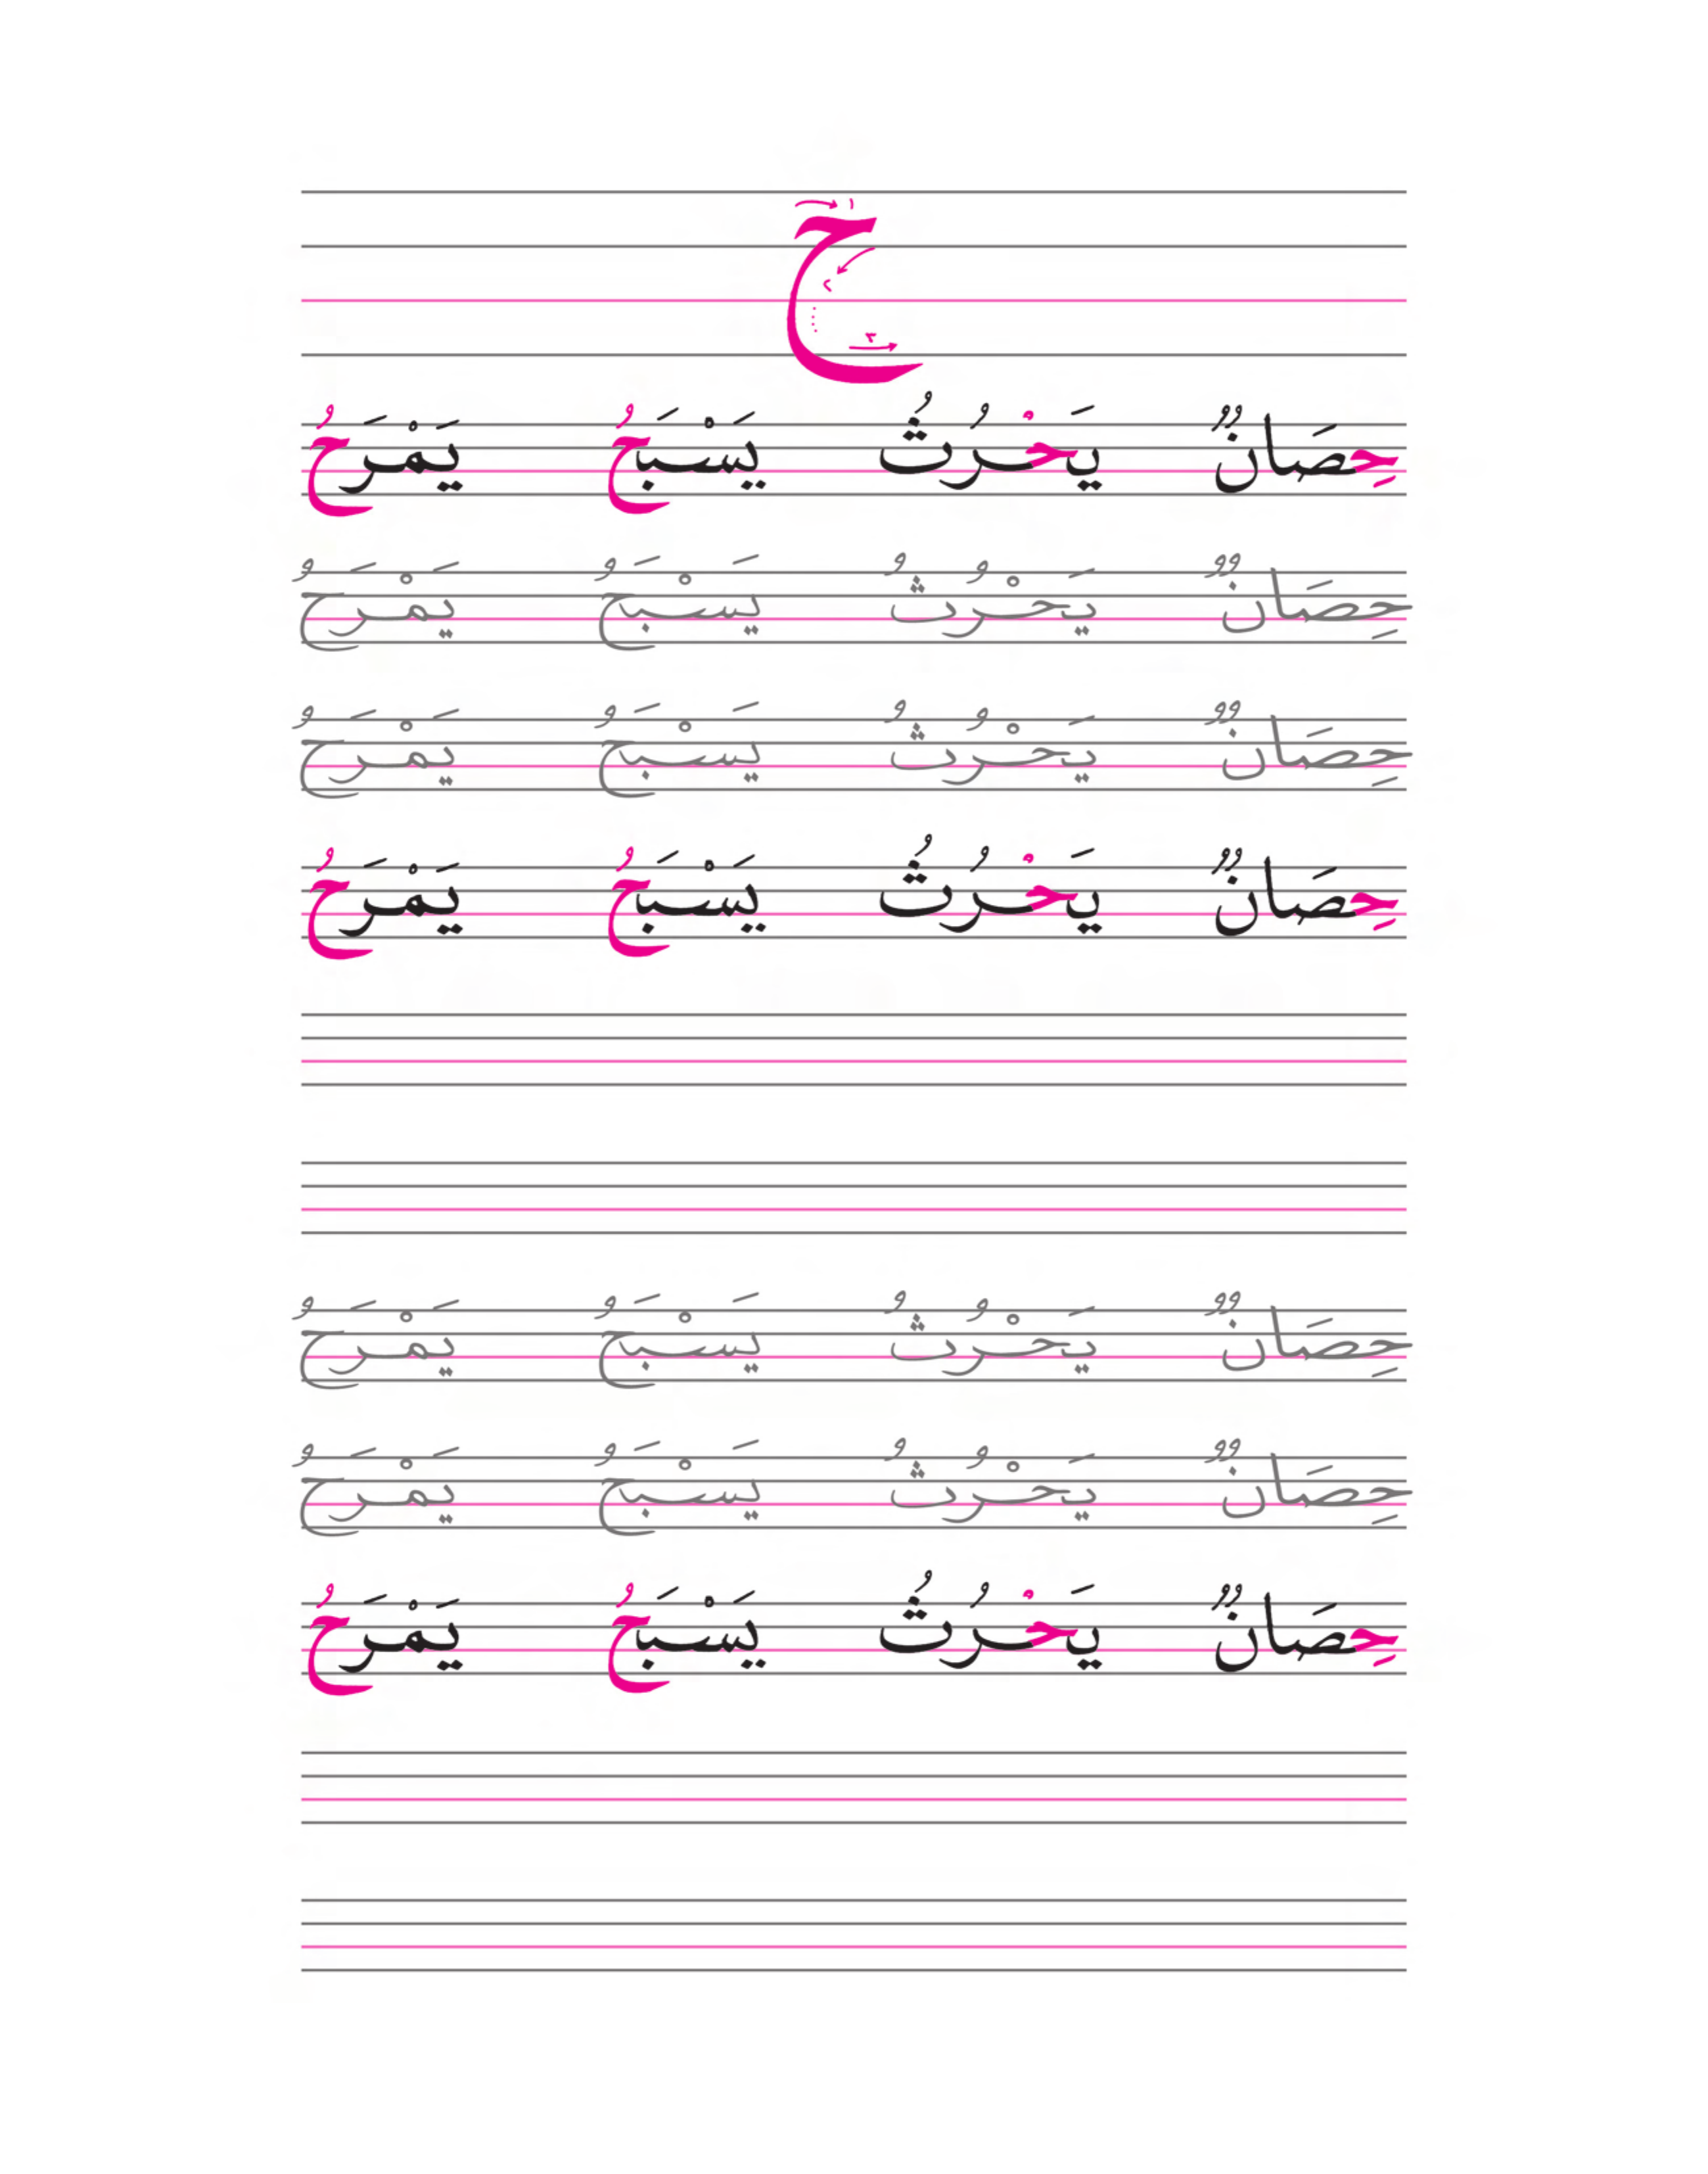 ح
١
٢
٣
حِصَانٌ يَحْرُثُ يَسْبَحُ يَمْرَحُ
حِصَانٌ يَحْرُثُ يَسْبَحُ يَمْرَحُ
حِصَانٌ يَحْرُثُ يَسْبَحُ يَمْرَحُ
حِصَانٌ يَحْرُثُ يَسْبَحُ يَمْرَحُ
حِصَانٌ يَحْرُثُ يَسْبَحُ يَمْرَحُ
حِصَانٌ يَحْرُثُ يَسْبَحُ يَمْرَحُ
حِصَانٌ يَحْرُثُ يَسْبَحُ يَمْرَحُ